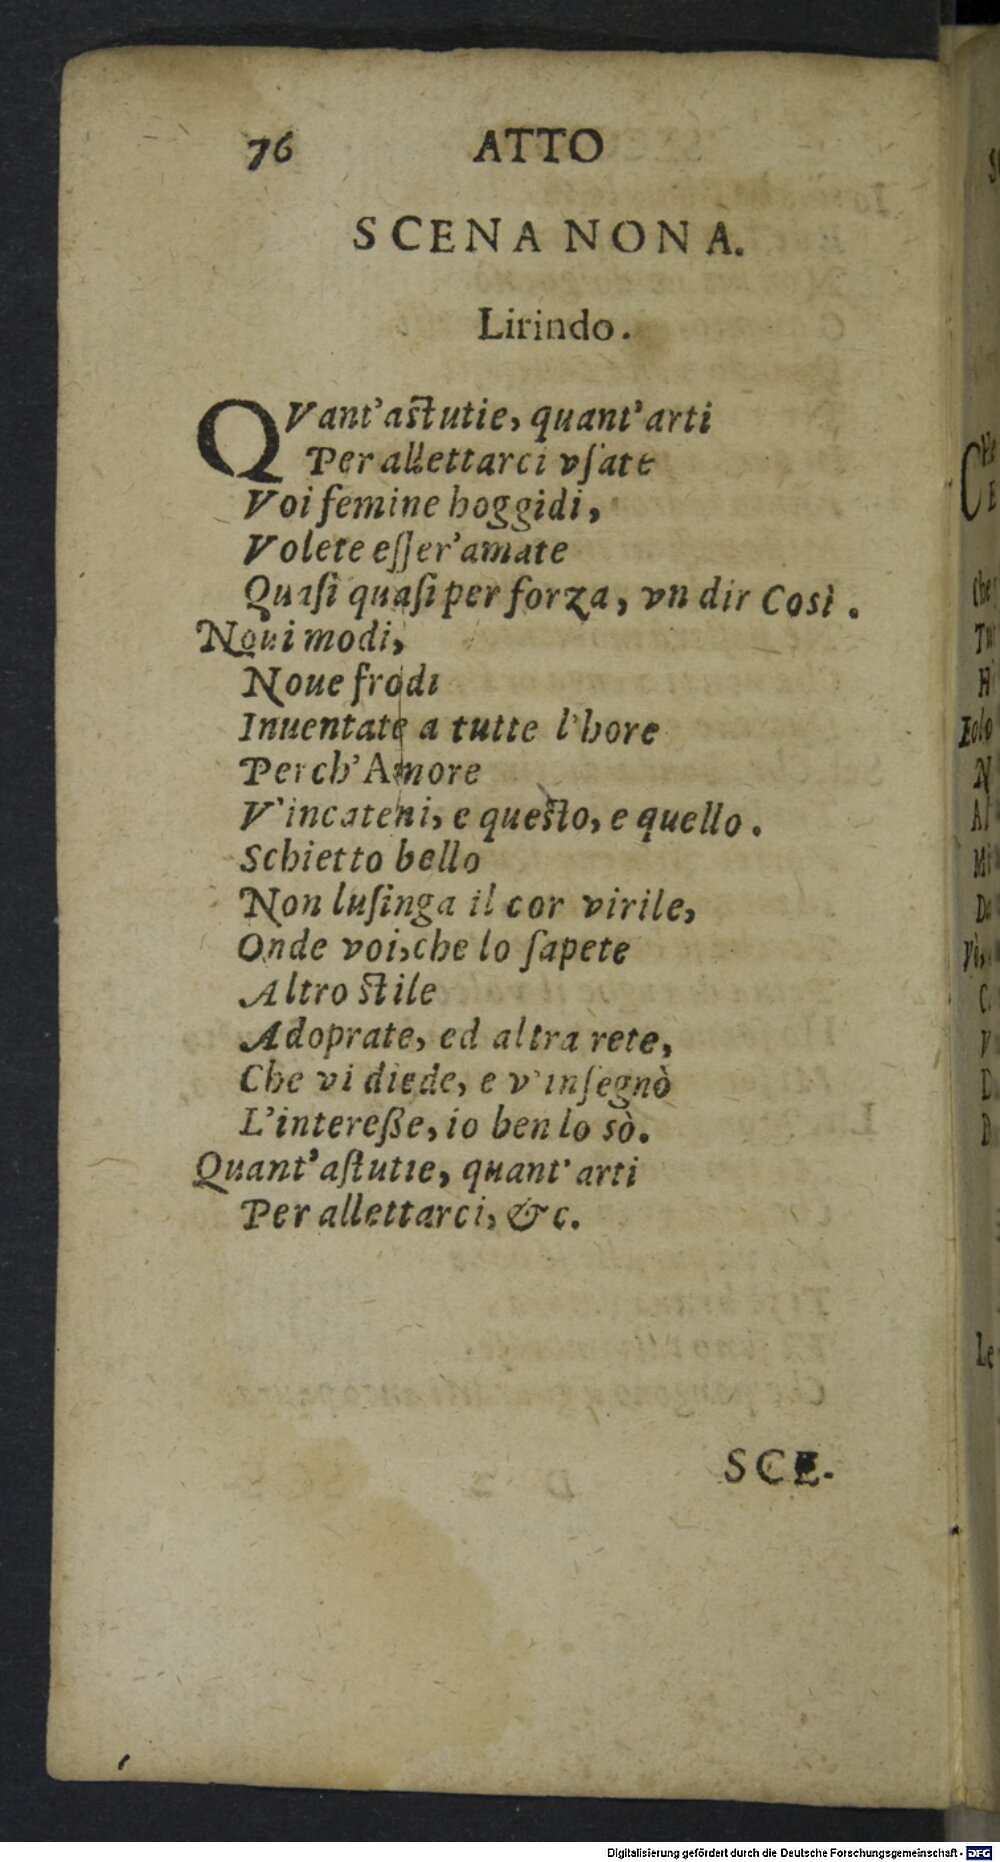 76 ATTO
SCENA NONA.
Lirindo.
QVant'astutie, quant'arti
Per allettarci vſate
Voi femine hoggidi,
Volete eſſer'amate
Quaſi quaſi per forza, vn dir Così.
Noui modi,
Noue frodi
Inuentate a tutte l'hore
Perch'Amore
V'incateni, e questo, e quello.
Schietto bello
Non luſinga il cor virile,
Onde voi, che lo ſapete
Altro stile
Adoprate, ed altra rete,
Che vi diede, e v'inſegnò
L'intereße, io ben lo sò.
Quant'aſtutie, quant'arti
Per allettarci, &c.
SCE-
Digitalisierung gefördert durch die Deutsche Forschungsgemeinschaft - DFG